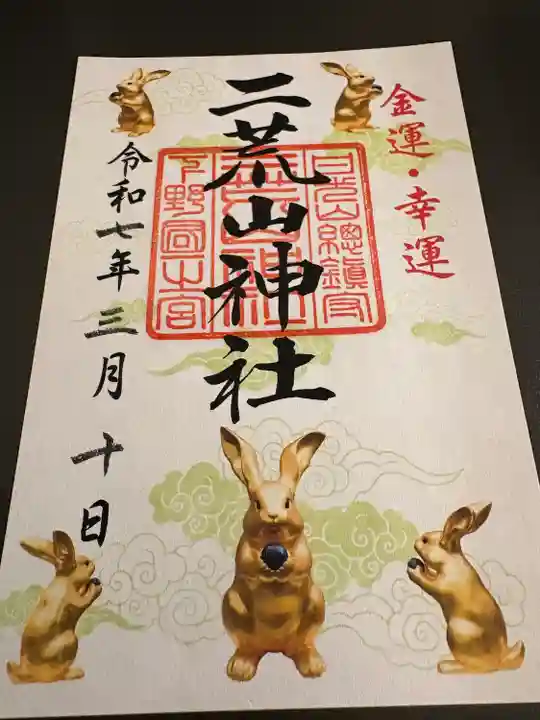 金運・幸運
二荒山神社
日光山總鎮守
下野國一宮
令和七年三月十日